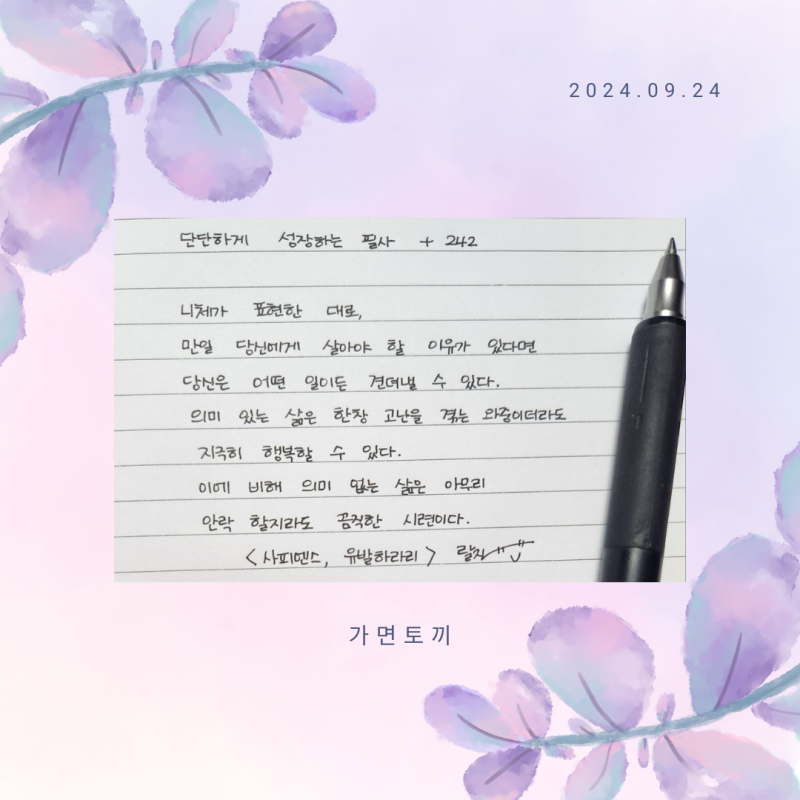 2024.09.24
단단하게 성장하는 필사 + 242
니체가 표현한 대로,
만일 당신에게 살아야 할 이유가 있다면
당신은 어떤 일이든 견뎌낼 수 있다.
의미 있는 삶은 한창 고난을 겪는 와중이더라도
지극히 행복할 수 있다.
이에 비해 의미 없는 삶은 아무리
안락 할지라도 끔직한 시련이다.
<사피엔스, 유발하라리>
가면토끼